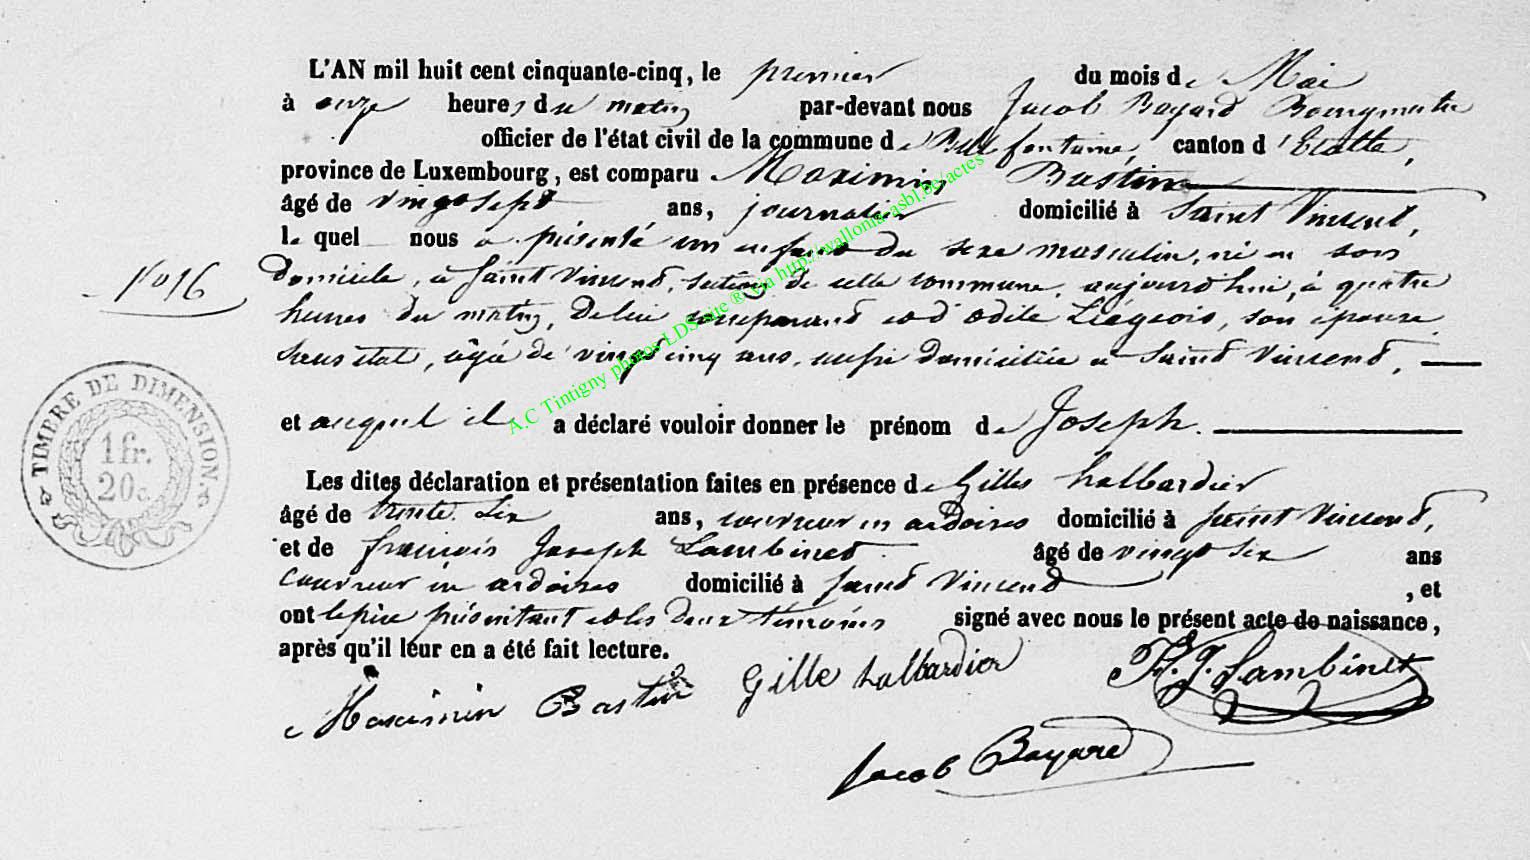 L'AN mil huit cent cinquante-cinq, le premier du mois de Mai
à onze heures du matin par-devant nous Jacob Bayard Bourgmestre
officier de l'état civil de la commune de Bellefontaine, canton d'Etalle,
province de Luxembourg, est comparu Maximin Bastin
âgé de vingt sept ans, journalier domicilié à Saint Vincent,
lequel nous a présenté un enfant du sexe masculin, né en son
No 16
domicile, à Saint Vincent, section de cette commune, aujourd'hui, à quatre
heures du matin, de lui comparant et d'Odile Liégeois, son épouse
sans état, âgée de vingt cinq ans, aussi domiciliée à Saint Vincent,
et auquel il a déclaré vouloir donner le prénom de Joseph.
TIMBRE DE DIMENSION.
1 fr.
20 c.
Les dites déclaration et présentation faites en présence de Gilles Halbardier
âgé de trente six ans, couvreur en ardoises domicilié à Saint Vincent,
et de françois Joseph Lambinet âgé de vingt six ans
couvreur en ardoises domicilié à Saint Vincent, et
ont le père présentant et les deux témoins signé avec nous le présent acte de naissance,
après qu'il leur en a été fait lecture.
Maximin Bastin Gille halbardier F. J. Lambinet
Jacob Bayard
A.C Tintigny photos LDS site ® via http://wallonia-asbl.be/actes